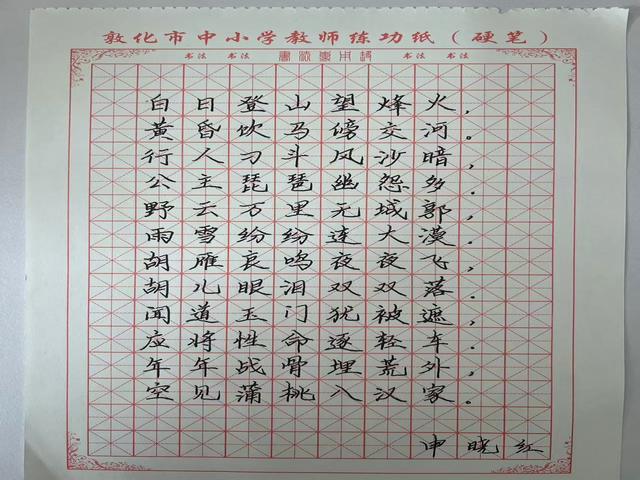 敦化市中小学教师练功纸(硬笔)
书法 书法 书法 书法
白日登山望烽火,
黄昏饮马傍交河。
行人刁斗风沙暗,
公主琵琶幽怨多。
野云万里无城郭,
雨雪纷纷连大漠。
胡雁哀鸣夜夜飞,
胡儿眼泪双双落。
闻道玉门犹被遮,
应将性命逐轻车。
年年战骨埋荒外,
空见蒲桃入汉家。
申晓红